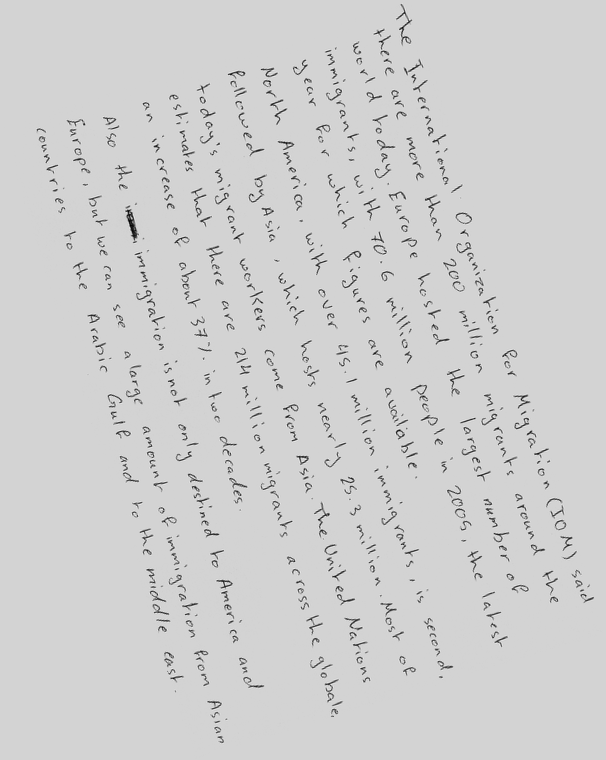 The International Organization for Migration (IOM) said
there are more than 200 million migrants around the
world today. Europe hosted the largest number of
immigrants, with 70.6 million people in 2005, the latest
year for which figures are availiable.
North America, with over 45.1 million immigrants, is second,
followed by Asia, which hosts nearly 25.3 million. Most of
today's migrant workers come from Asia. The United Nations
estimates that there are 214 million migrants across the globale,
an increase of about 37% in two decades.
Also the immigration is not only destined to America and
Europe, but we can see a large amount of immigration from Asian
countries to the Arabic Gulf and to the middle east.